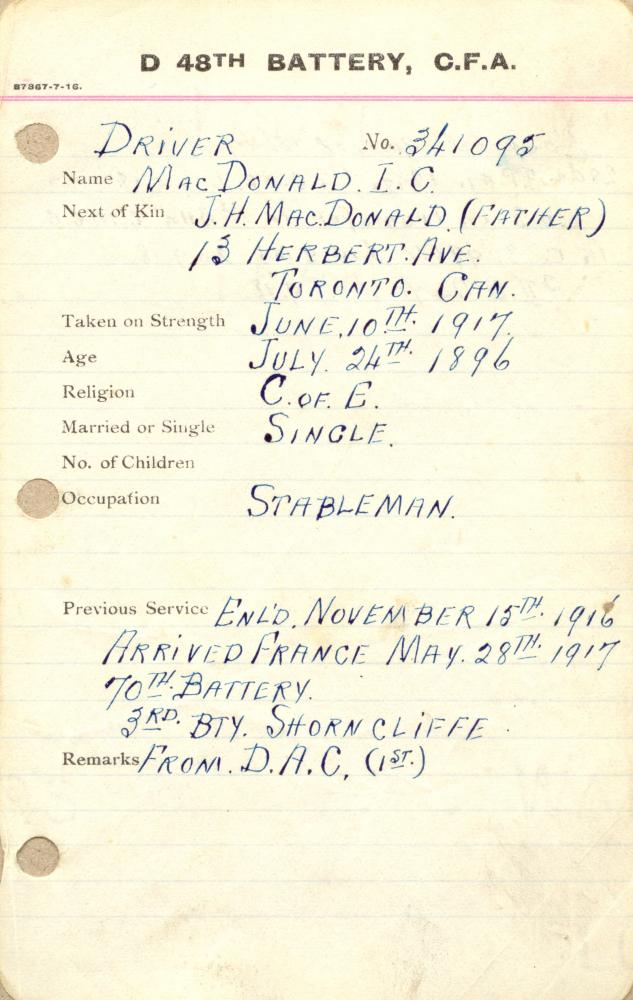 D 48TH BATTERY, C.F.A.
87367-7-16.
DRIVER No. 341095
Name MAC DONALD. I. C.
Next of Kin J. H. MAC. DONALD. (FATHER)
13 HERBERT. AVE.
TORONTO. CAN.
Taken on Strength JUNE, 10TH. 1917.
Age JULY. 24TH. 1896
Religion C. OF. E.
Married or Single SINGLE.
No. of Children
Occupation STABLEMAN.
Previous Service ENL'D. NOVEMBER 15TH. 1916
ARRIVED FRANCE MAY. 28TH. 1917
70TH. BATTERY.
3RD. BTY. SHORNCLIFFE.
Remarks FROM. D. A. C, (1ST.)